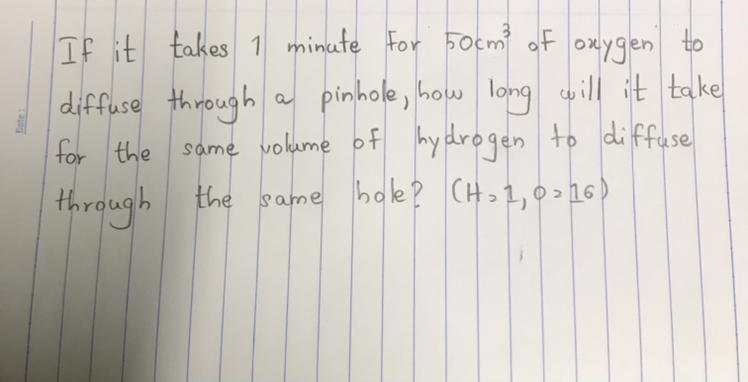 If it takes 1 minute for 50cm³ of oxygen to
diffuse through a pinhole, how long will it take
for the same volume of hydrogen to diffuse
through the same hole? (H=1, O=16)
Date: